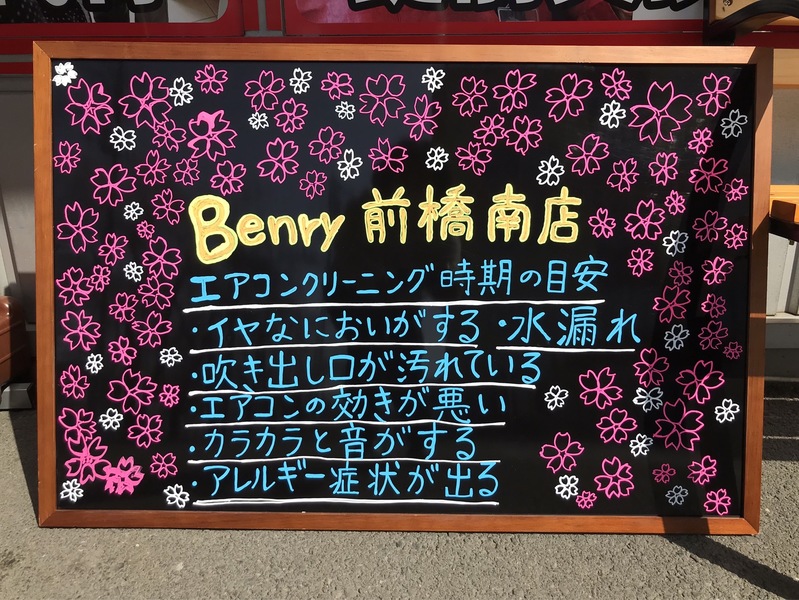 Benry 前橋南店
エアコンクリーニング時期の目安
・イヤなにおいがする ・水漏れ
・吹き出し口が汚れている
・エアコンの効きが悪い
・カラカラと音がする
・アレルギー症状が出る